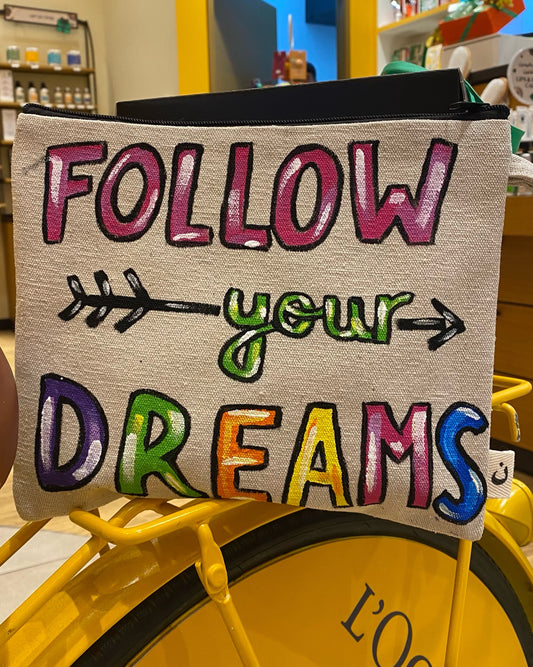 FOLLOW
your
DREAMS
ن
L'OC